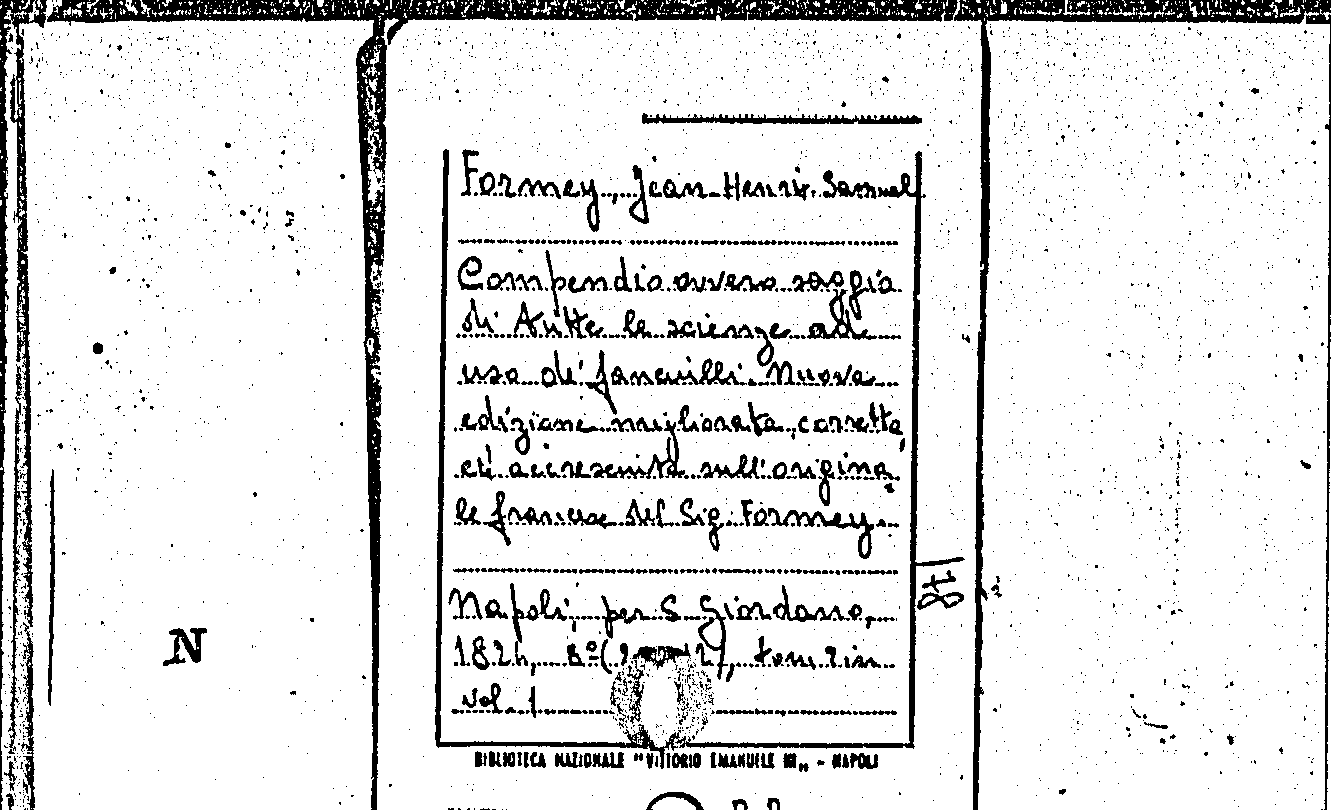 Formey, Jean-Henri-Samuel
Compendio ovvero saggio
di tutte le scienze ad
uso de' fanciulli. Nuova
edizione migliorata, corretta,
ed accresciuta sull'origina
le francese del Sig. Formey.
Napoli, per S. Giordano,
182 8º ( 12), tomi 2 in
vol. 1
BIBLIOTECA NAZIONALE "VITTORIO EMANUELE III" - NAPOLI
N